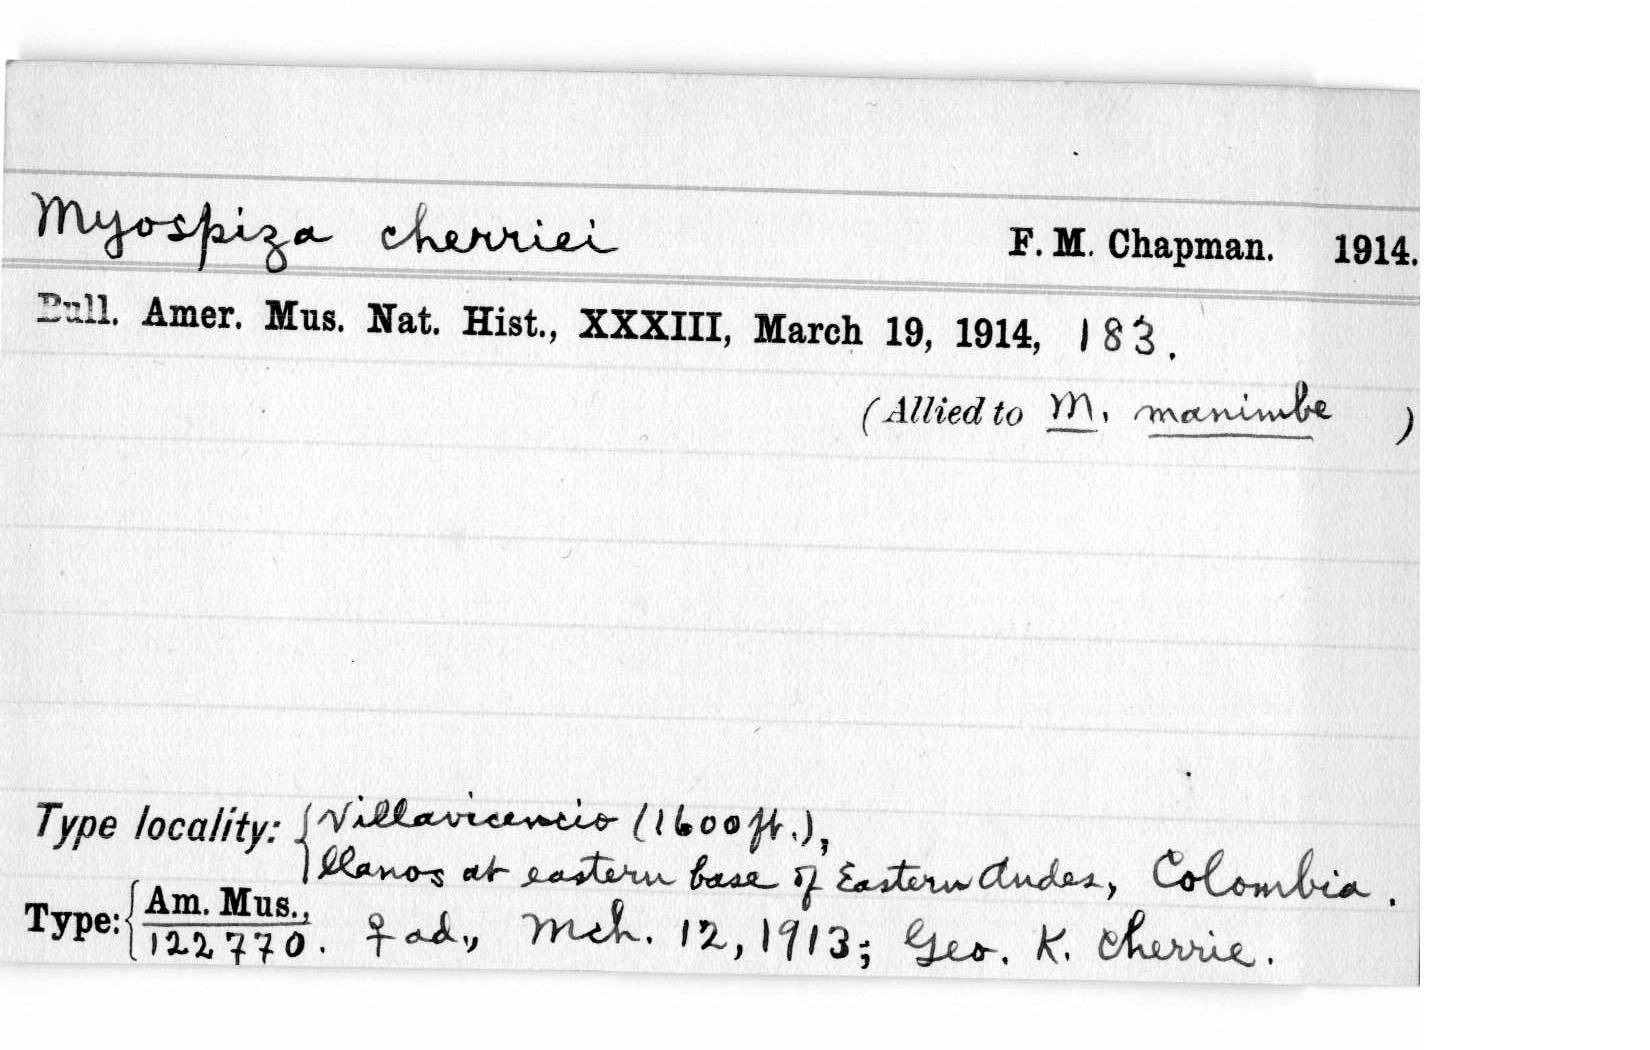 Myospiza cherriei F. M. Chapman. 1914.
Bull. Amer. Mus. Nat. Hist., XXXIII, March 19, 1914, 183.
(Allied to M. manimbe )
Type locality: { Villavicencio (1600 ft.),
llanos at eastern base of Eastern Andes, Colombia.
Type: { Am. Mus.,
122770. ♀ ad., Mch. 12, 1913; Geo. K. Cherrie.